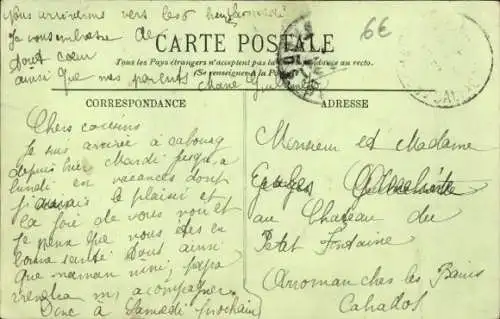 Nous arriverons vers les 6 heures
Je vous embrasse de
tout cœur
ainsi que mes parents Marie
6€
CARTE POSTALE
Tous les Pays étrangers n'acceptent pas la correspondance au recto.
(Se renseigner à la Poste)
CORRESPONDANCE
Chers cousins
Je suis arrivée à cabourg
depuis hier Mardi jusqu'a
lundi en vacances dont
j'aurais le plaisir et
la joie de vous voir et
je peux que vous etes en
bonne santé. Dont ainsi
que maman nini, papa
viendra m, acompagner
Donc à Samedi prochain
ADRESSE
Monsieur et Madame
Georges
au Chateau du
Petit Fontaine
Arromanches les Bains
Calvados